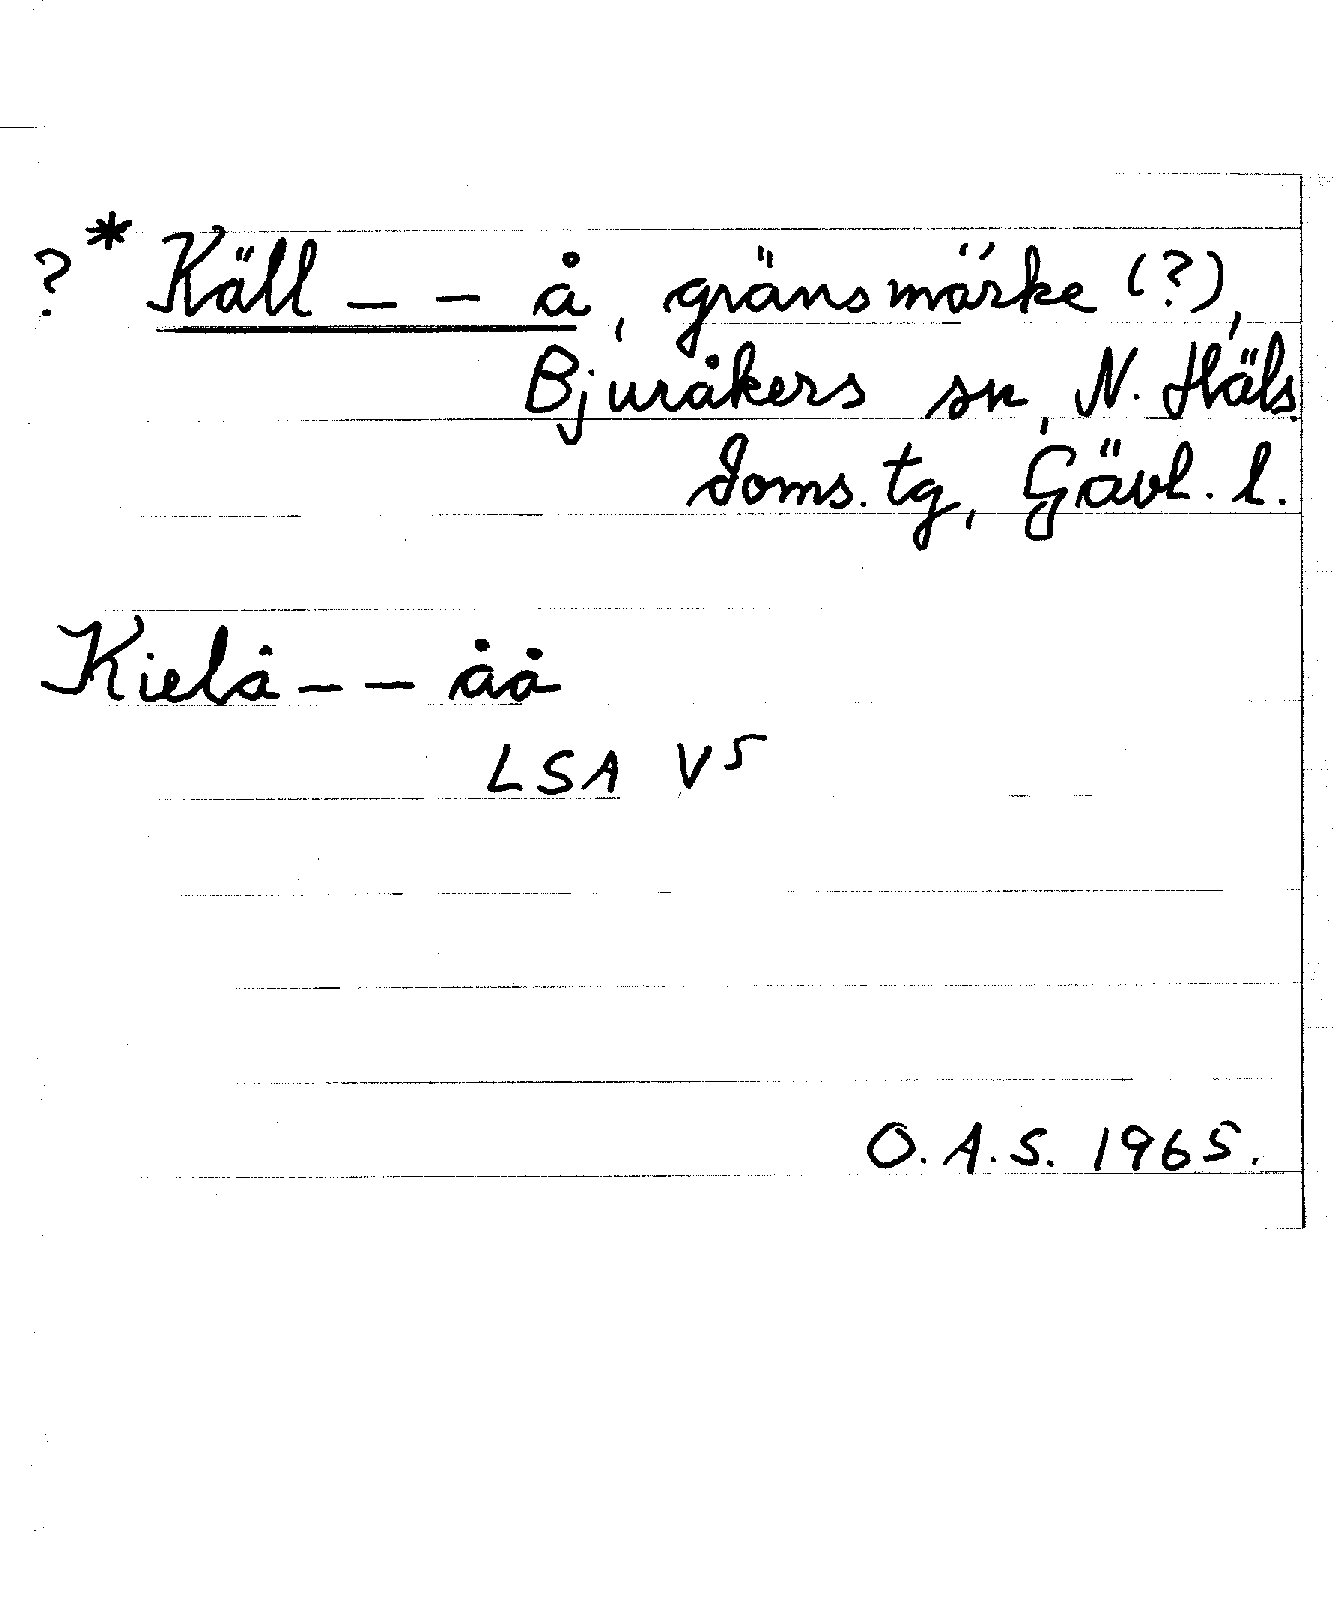 ?* Käll -- å, gränsmärke (?),
Bjuråkers sn, N. Häls.
doms. tg, Gävl. l.
Kielå -- åå
LSA V5
O.A.S. 1965.